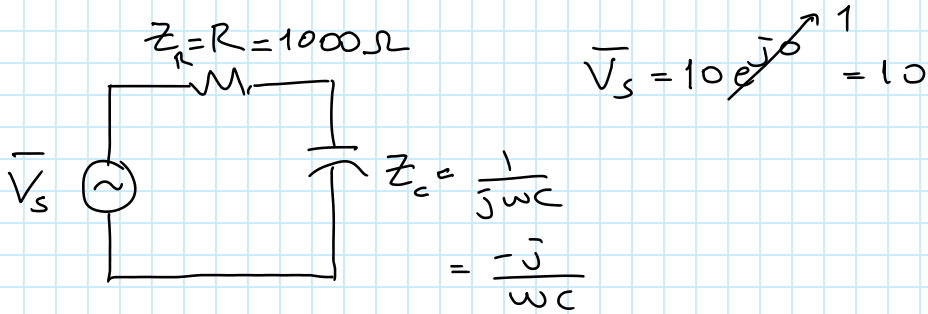 Z_R = R = 1000 Ω
V̅_s = 10 e^{j0} = 10
1
V̅_s
Z_c = 1/(jωC)
= -j/(ωC)